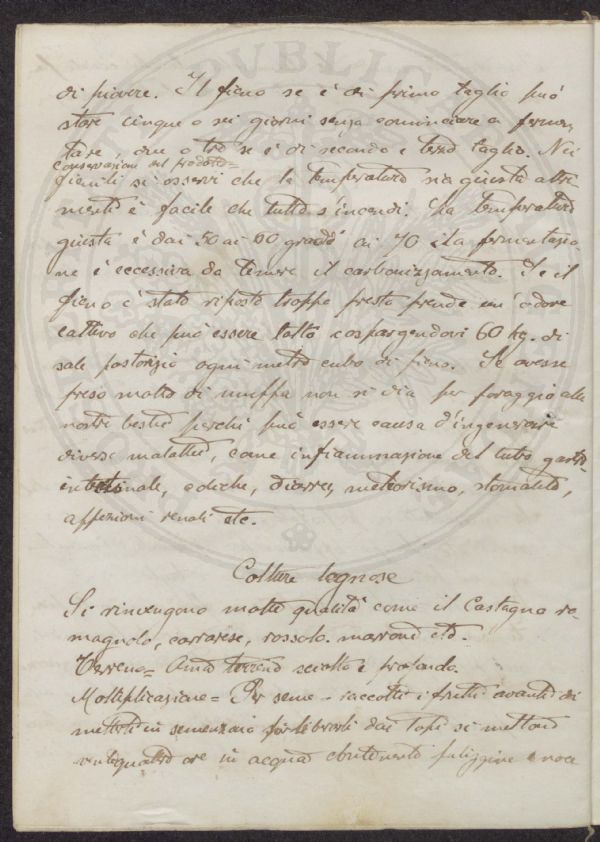 di piovere. Il fieno se è di primo taglio può
stare cinque o sei giorni senza cominciare a fermen
tare, due o tre se è di secondo e terzo taglio. Nei
Conservazioni del prodotto =
fienili si osservi che la temperatura sia giusta altri
menti è facile che tutto s'incendi. La temperatura
giusta è dai 50 ai 60 gradi ai 70 la fermentazio
ne è eccessiva da temere il carbonizzamento. Se il
fieno è stato riposto troppo presto prende un'odore
cattivo che può essere tolto cospargendovi 60 kg. di
sale pastorizio ogni metro cubo di fieno. Se avesse
preso molto di muffa non si dia per foraggio alle
nostre bestie perchè può essere causa d'ingenerare
diverse malattie, come infiammazione del tubo gastro
intestinale, coliche, diarree, meteorismo, stomatite,
affezioni renali etc.
Colture legnose
Si rinvengono molte qualità come il Castagno ro
magnolo, carrarese, rossolo. marrone etc.
Terreno = Ama terreno sciolto e profondo.
Moltiplicazione = Per seme - raccolti i frutti avanti di
metterli in semenzaio per liberarli dai topi si mettono
ventiquattro ore in acqua contenente fuliggine o noce